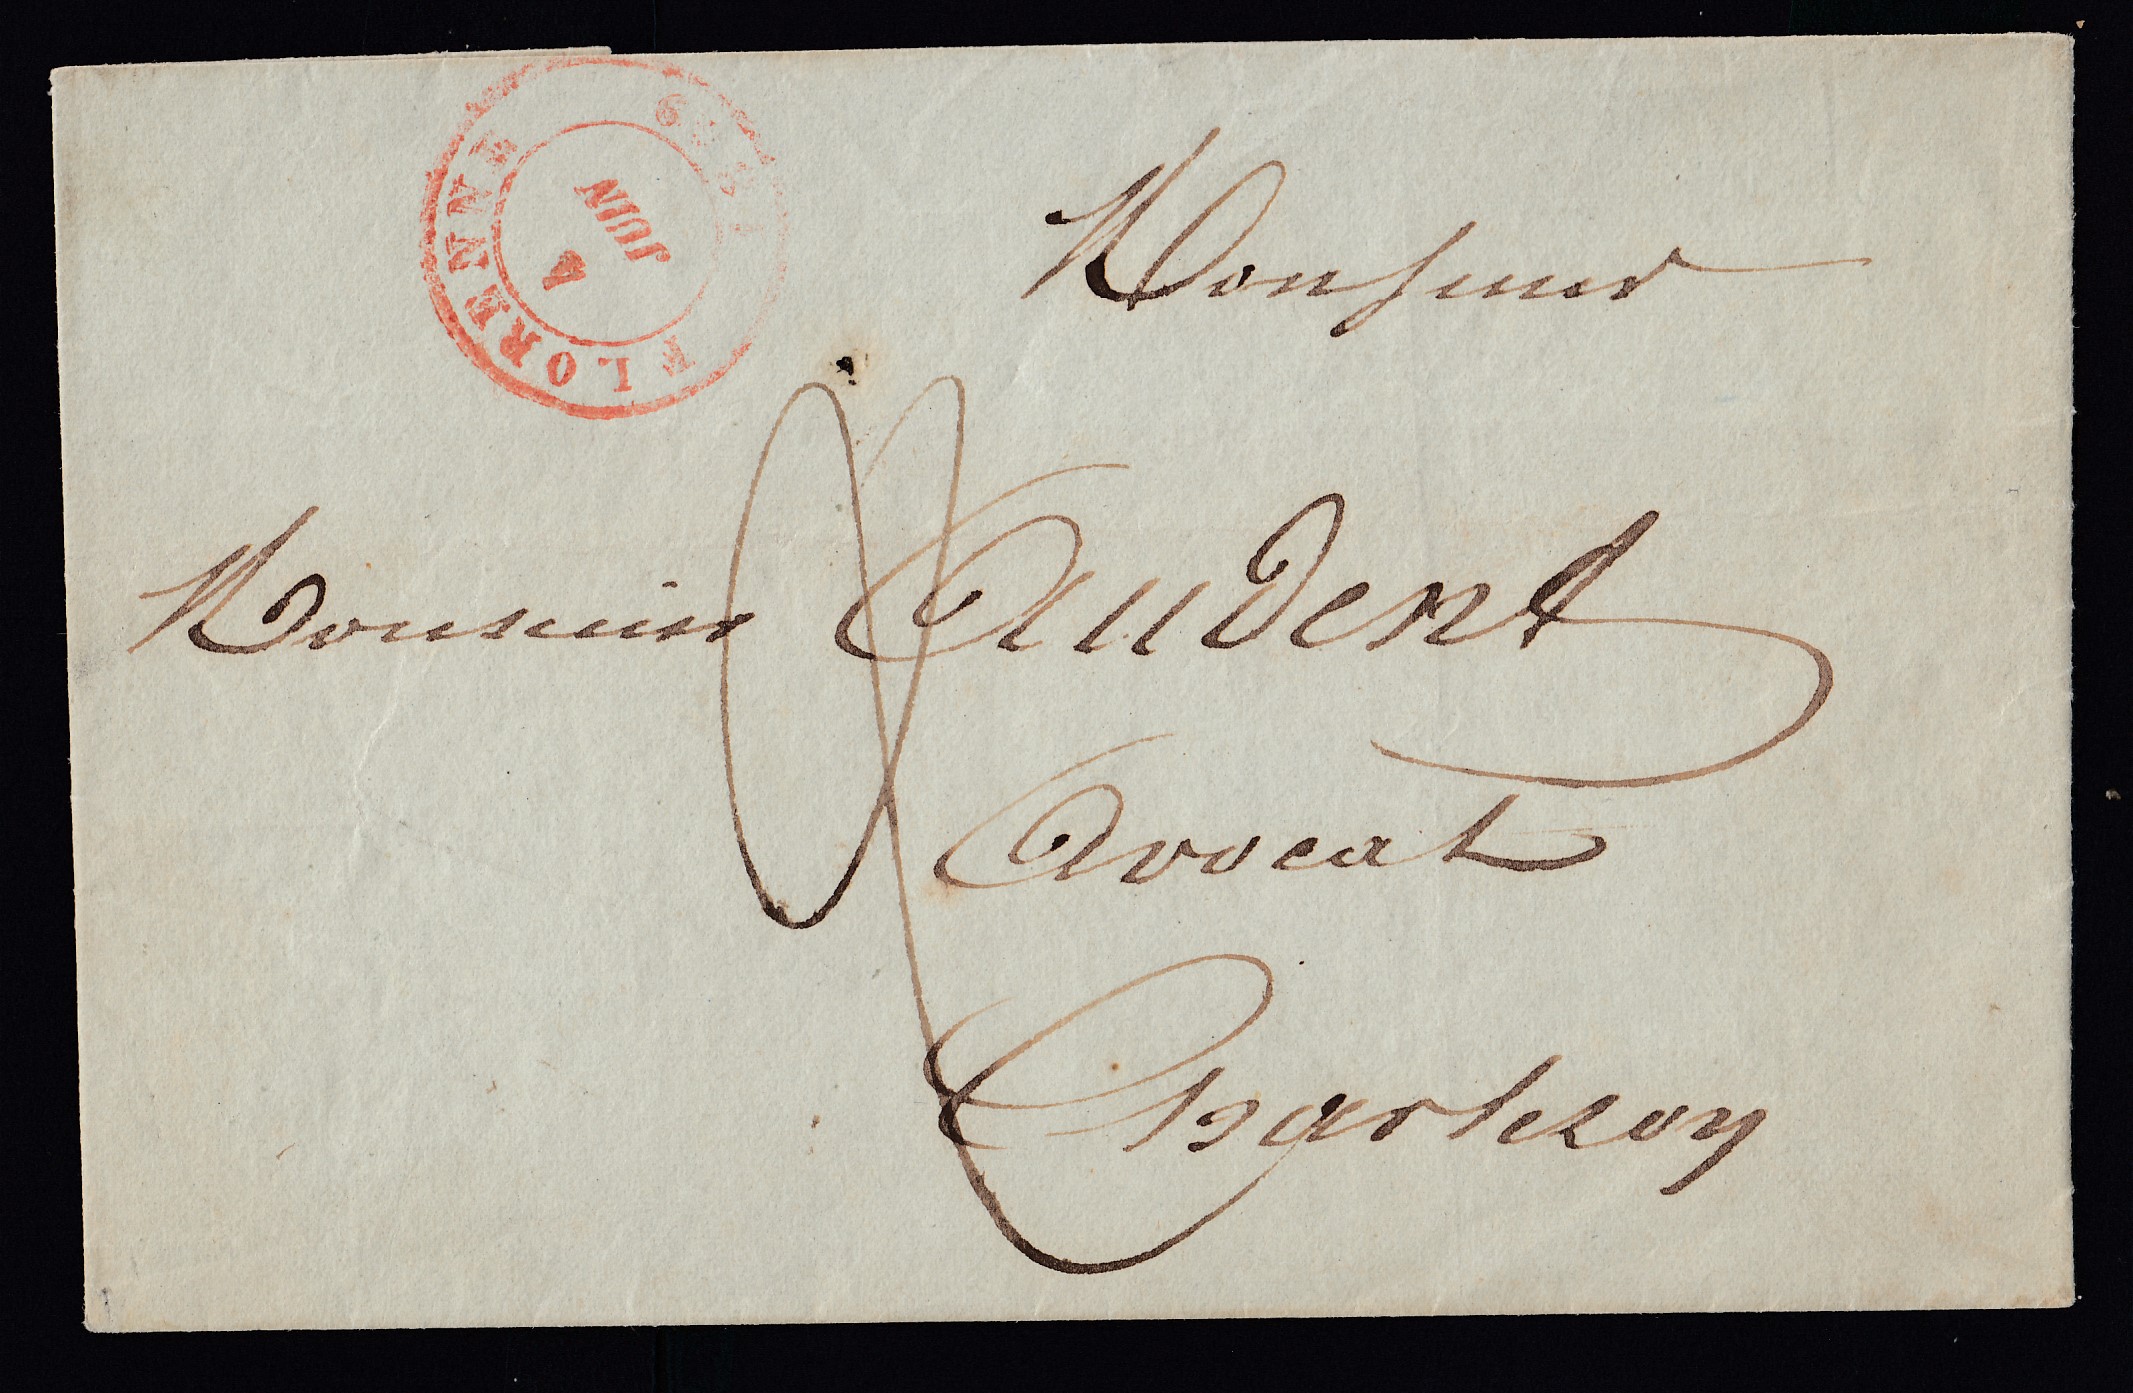 FLORENNE
4
JUIN
Monsieur
Monsieur Audent
Avocat
Charleroy